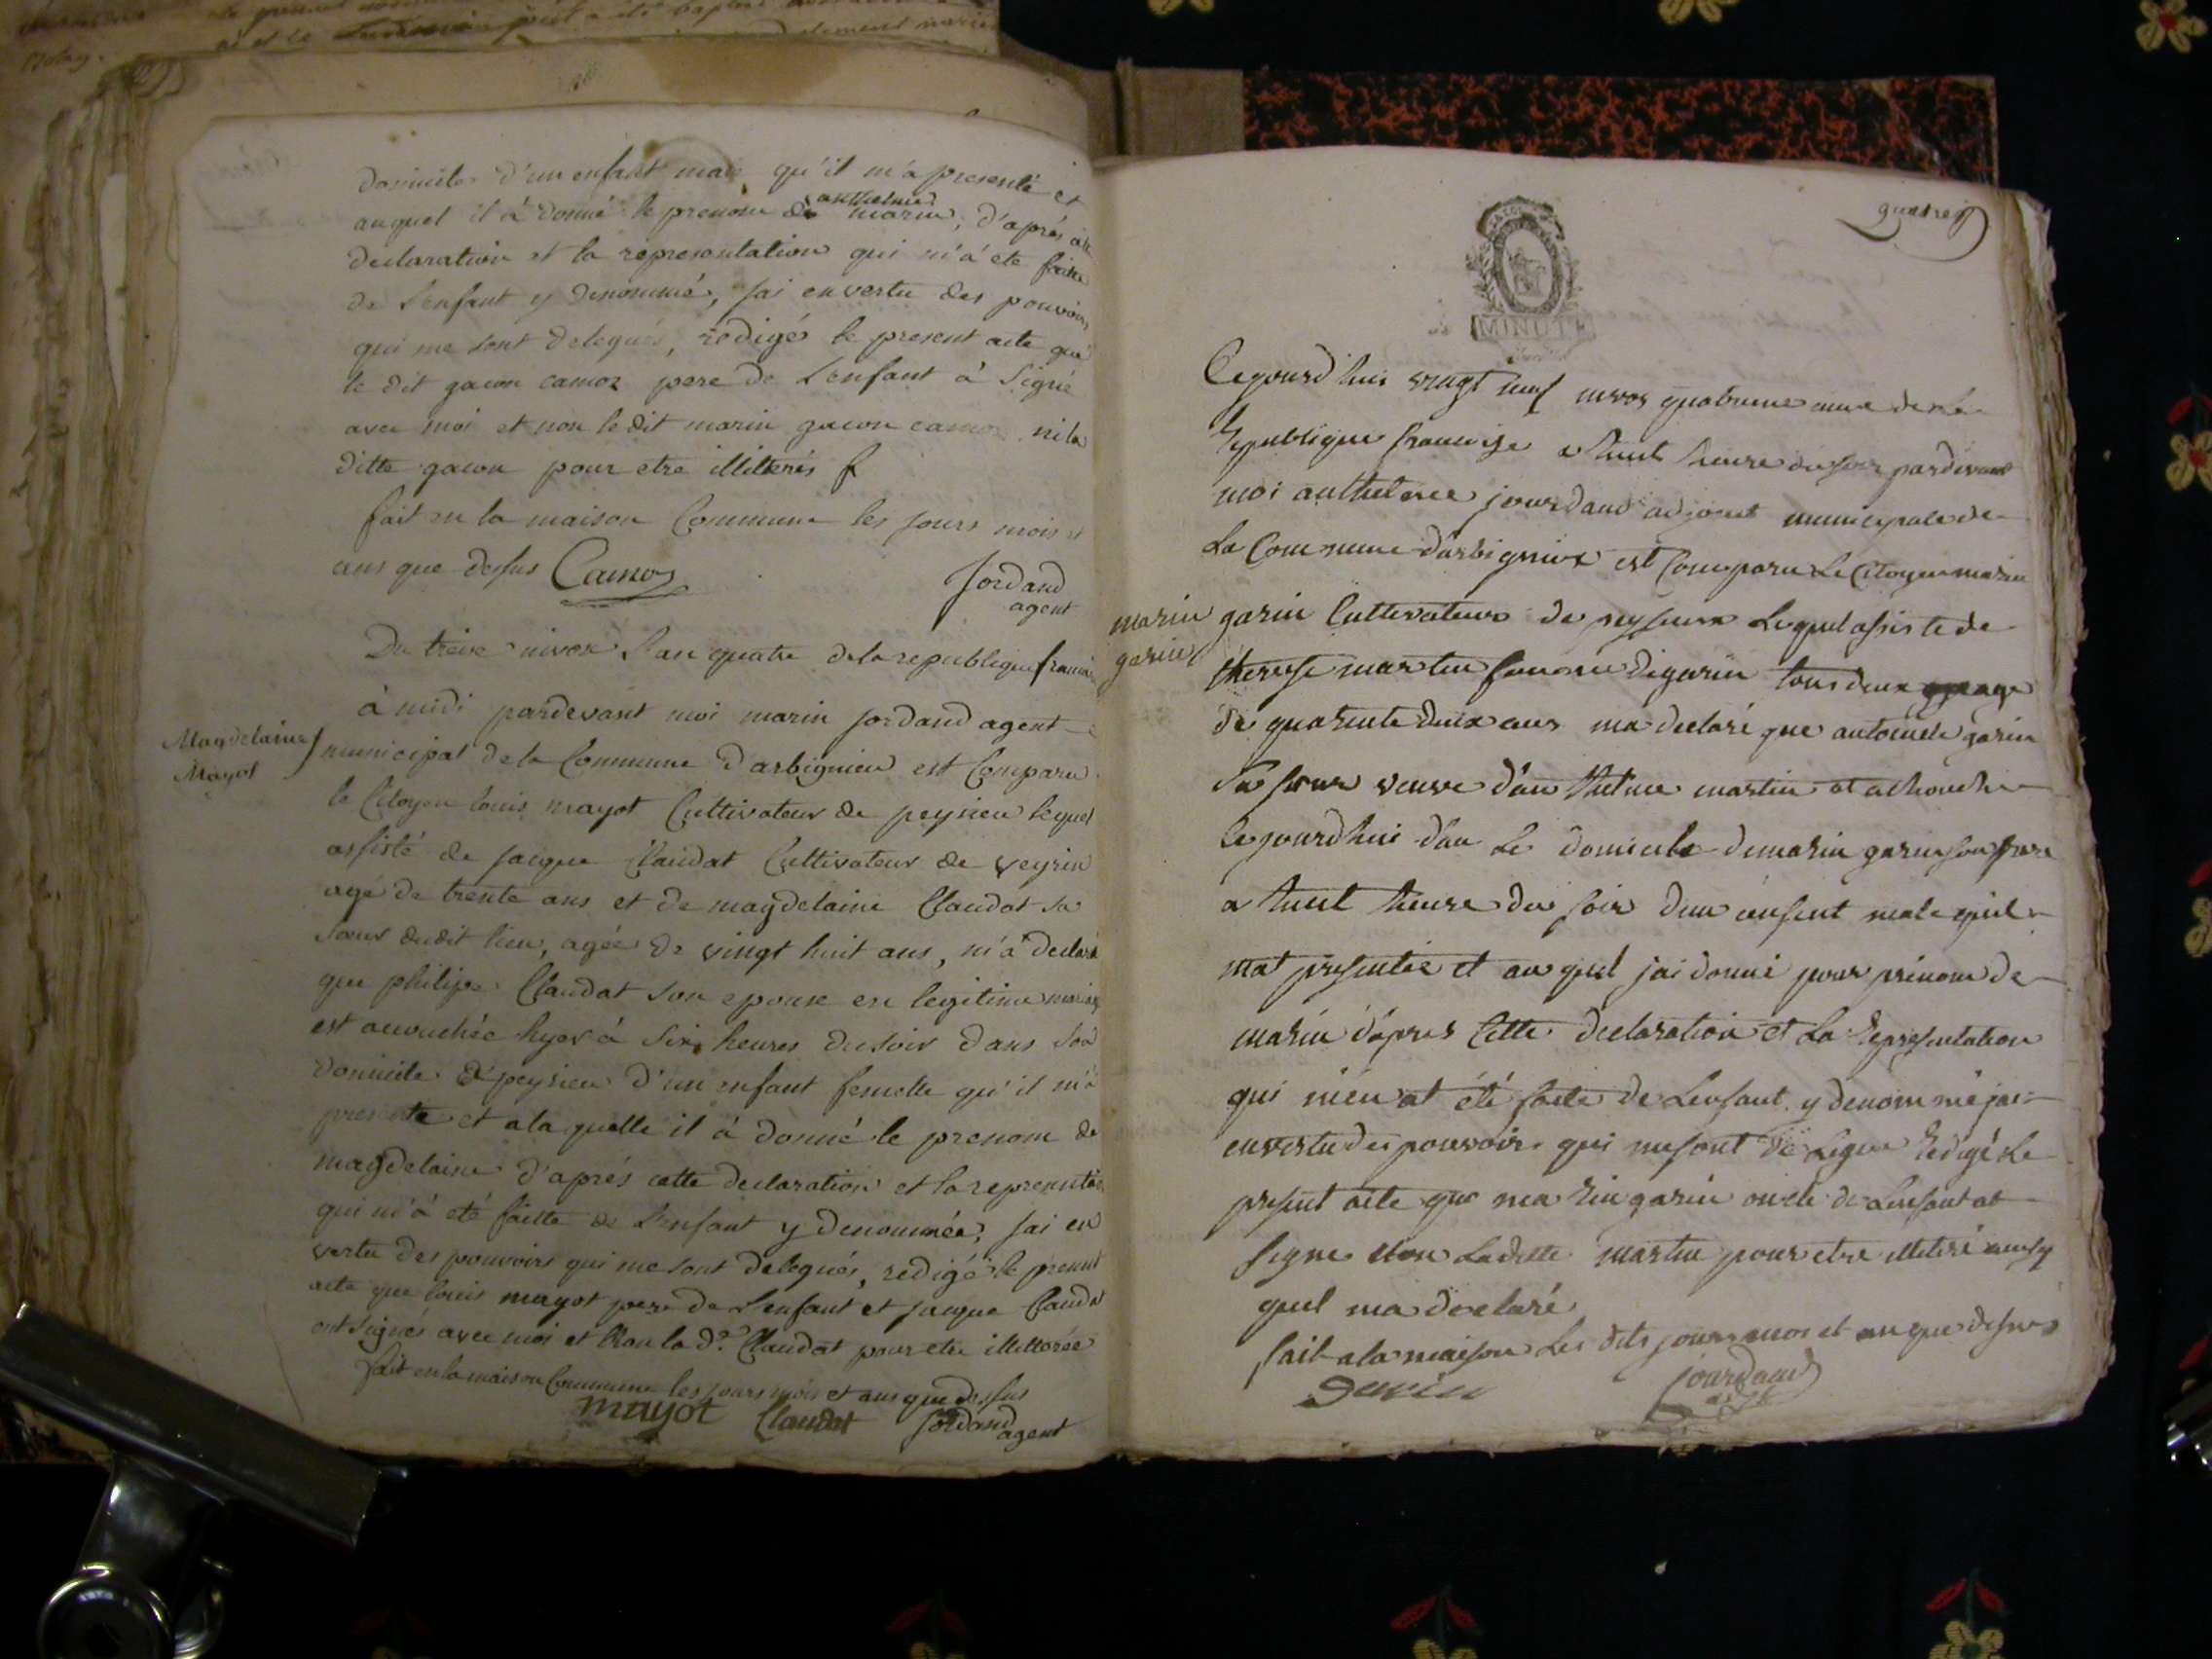 domicile d'un enfant male qu'il m'a presenté et
auquel il a donné le prenom de anthelme marin, d'aprés cette
declaration et la representation qui m'a ete faite
de l'enfant y denommé, jai en vertu des pouvoirs
qui me sont delegués, redigés le present acte que
le dit gacon camoz pere de l'enfant a signé
avec moi et non le dit marin gacon camoz ni la
ditte gacon pour etre illiterés
fait en la maison Commune les jours mois et
ans que dessus Camoz
Jordand
agent
Magdelaine
Mayot
Du treize nivose l'an quatre de la republique francaise
à midi pardevant moi marin jordand agent
municipal de la Commune d'arbignieu est Comparu
le Citoyen louis mayot Cultivateur de peysieu lequel
assisté de jacque Claudat Cultivateur de veyrin
agé de trente ans et de magdelaine Claudat sa
soeur dudit lieu, agée de vingt huit ans, m'a declaré
que philipe Claudat son epouse en legitime mariage
est accouchée hyer à six heures du soir dans son
domicile à peysieu d'un enfant femelle qu'il m'a
presenté et a laquelle il à donné le prenom de
magdelaine d'aprés cette declaration et la representation
qui m'à eté faitte de l'enfant y denommée, jai en
vertu des pouvoirs qui me sont delegués, redigé le present
acte que louis mayot pere de l'enfant et jacque Claudat
ont signés avec moi et non la d.e Claudat pour etre illitterée
fait en la maison Commune les jours mois et ans que dessus
mayot Claudat Jordand
agent
quatre
MINUTE
Cejourd huis vingt neuf nivos quatrieme anné de la
Republique francaise a huit heure du soir pardevant
moi anthelme jourdand adjoint municipale de
La Commune d'arbignieux est Comparu Le Citoyen marin
marin
garin
garin Cultivateur de peysieux Lequel assiste de
therese martin femme de garin tous deux age
de quarente deux ans ma declaré que antoinete garin
sa soeur veuve d'an thelme martin at achouché
Cejourdhui dan Le domicile de marin garin son frere
a huit heure du soir d'un enfent male qu'il
mat presentée et au quel jai donné pour prénom de
marin d'apres Cette declaration et La Representation
qui m'en at été faite de Lenfant y denommé jai
en vertu des pouvoir qui me sont de Legué Redigé Le
present acte que marin garin oncle de Lenfant at
signe Non Laditte martin pour etre illiteré ainsy
quel ma declaré
fait a la maison Les dits jours mois et an que dessus
garin jourdand